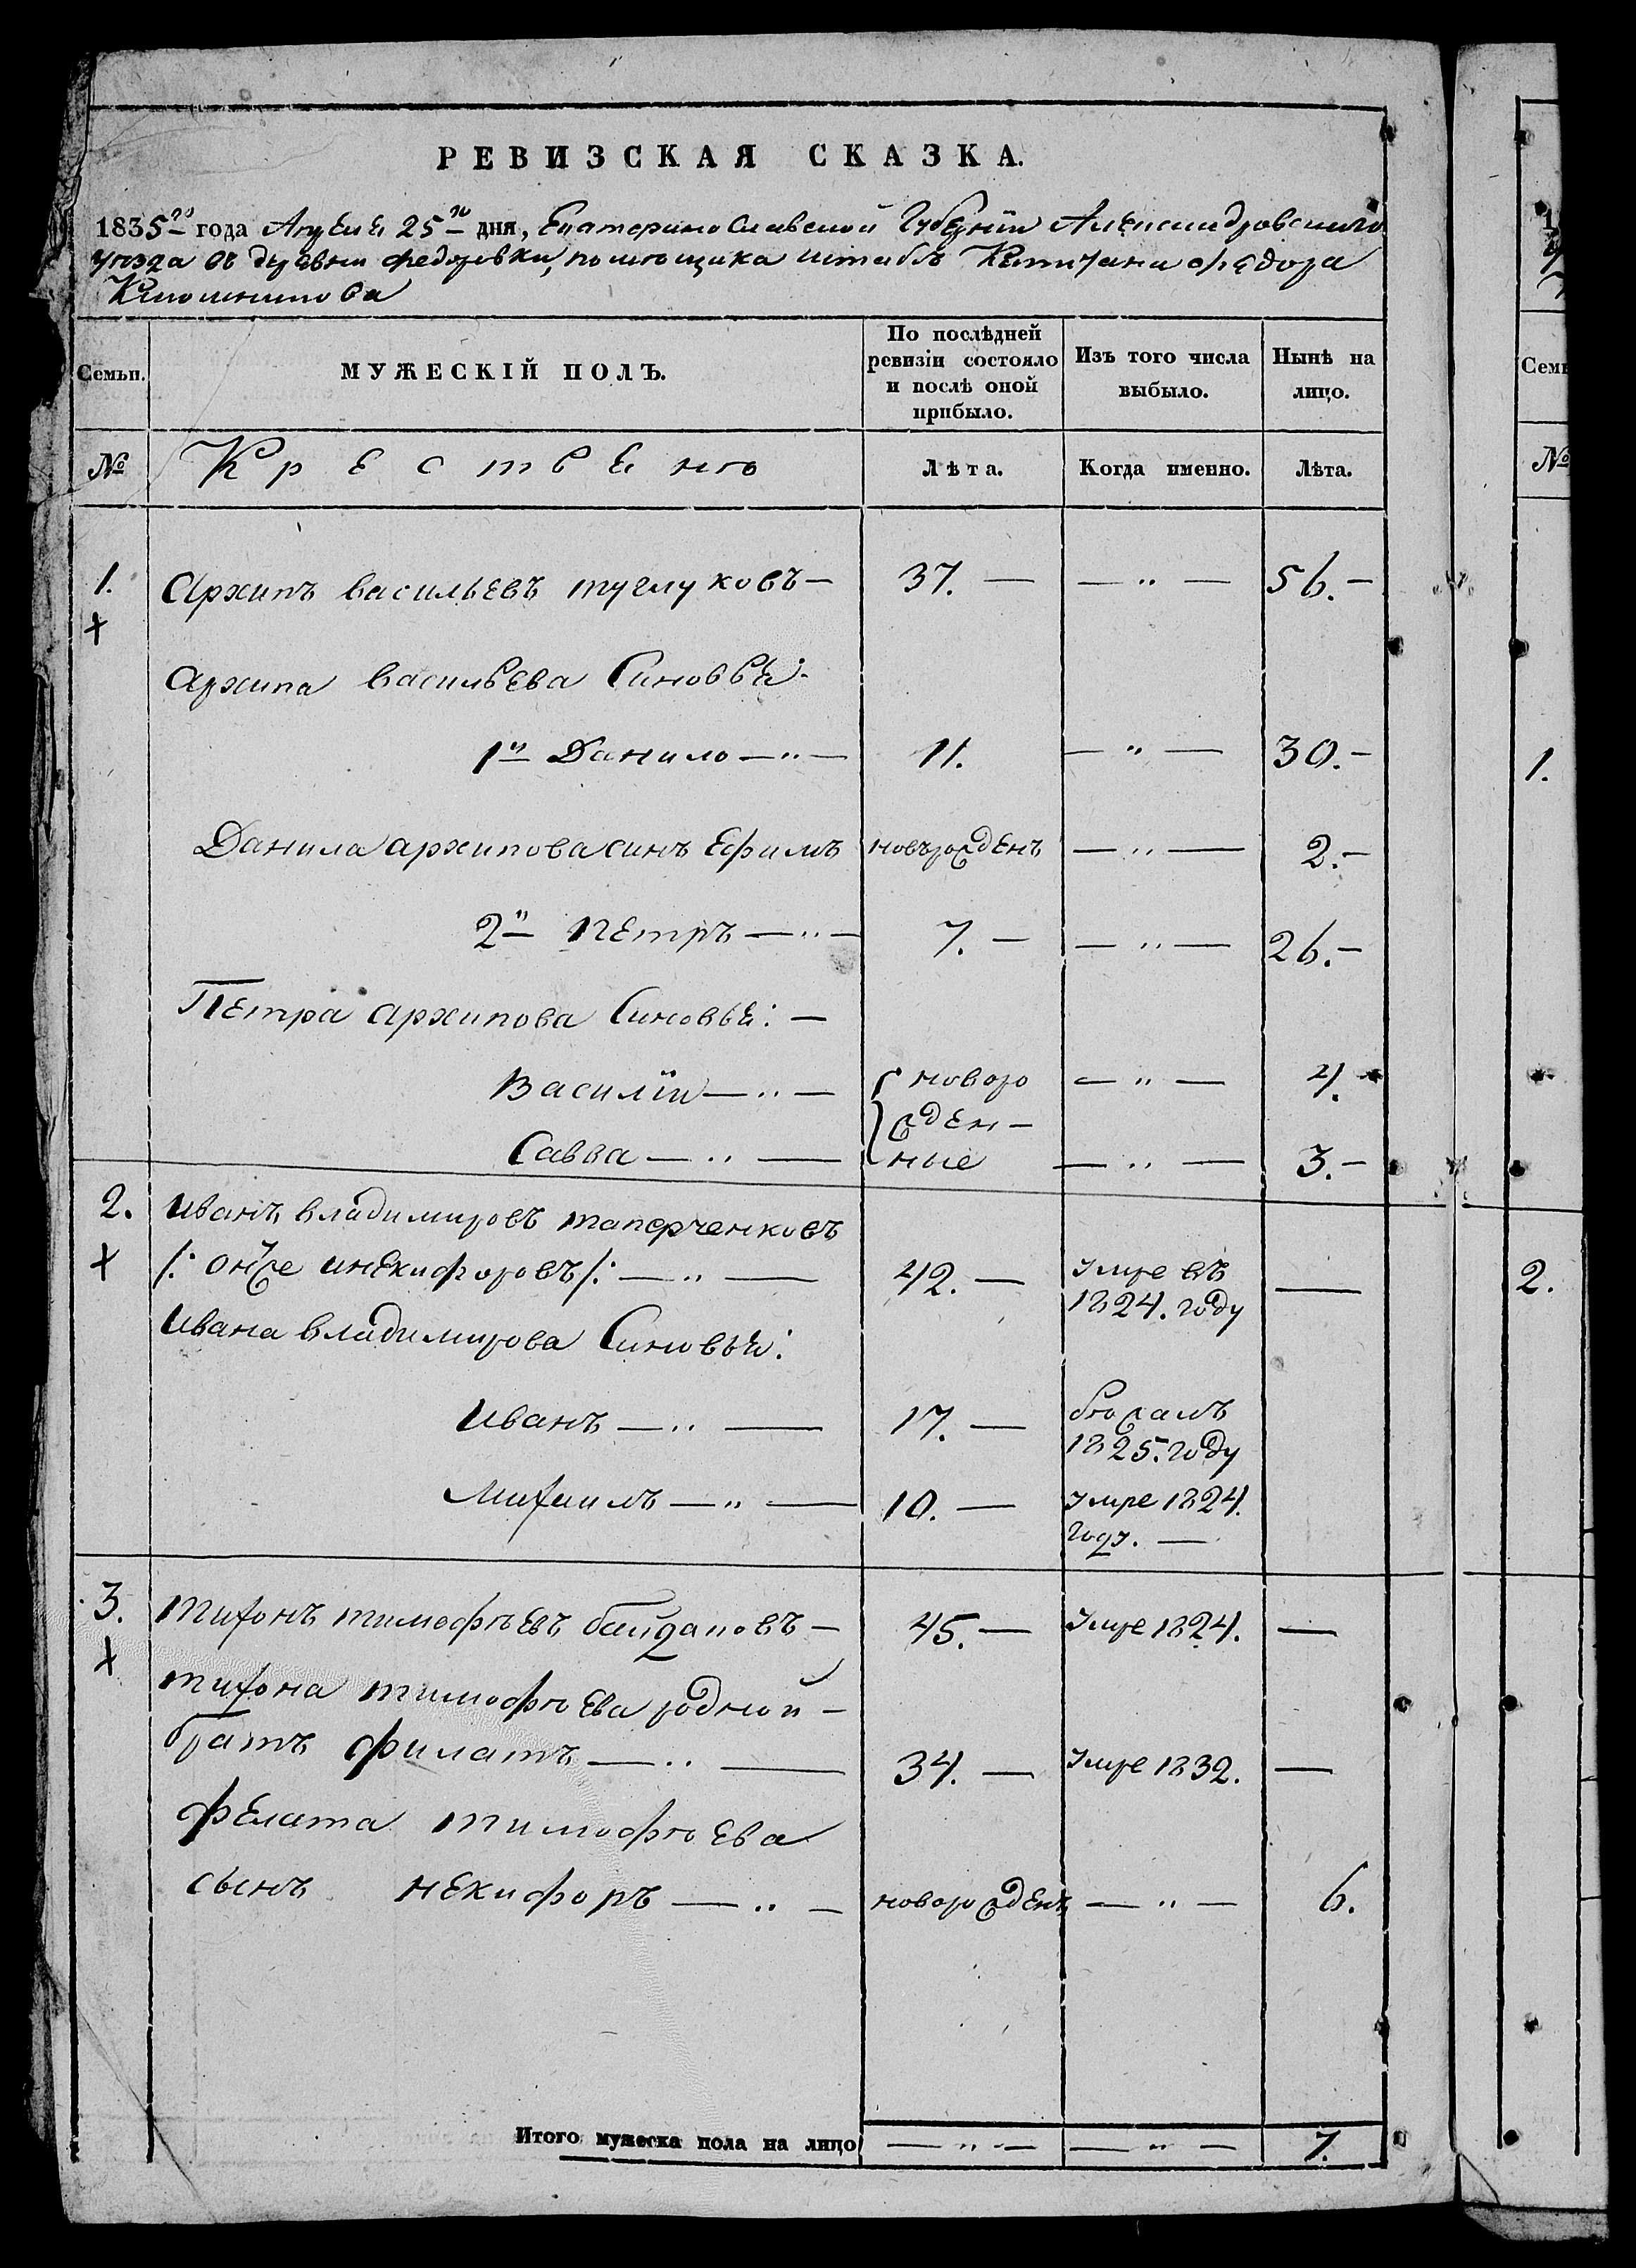 РЕВИЗСКАЯ СКАЗКА.
1835го года Апреля 25го дня, Екатеринославской Губернии Александровского
уезда въ деревни федоровки, помѣщика штабъ Капитана федора
Семьи. МУЖЕСКІЙ ПОЛЪ. По послѣдней ревизіи состояло и послѣ оной прибыло. Изъ того числа выбыло. Нынѣ на лицо.
№ Лѣта. Когда именно. Лѣта.
1. Архипъ васильевъ туглуковъ — 37. — — „ — 56. —
х
Архипа васильева Синовье:
1й Данило — „ — 11. — „ — 30. —
Данила архипова синъ Ефимъ новърожденъ — „ — 2. —
2й Петръ — „ — 7. — — „ — 26. —
Петра архипова Синовье: —
Василіи — „ — новоро — „ — 4. —
жден —
Савва — „ — ные — „ — 3. —
2. иванъ владимировъ таперченковъ
х /: онже инекифоровъ /: — „ — 42. — умре въ —
1824. году
Ивана владимирова Синовье:
иванъ — „ — 17. — бежалъ
1825. году
Михаилъ — „ — 10. — умре 1824.
году. —
3. тихонъ тимофѣевъ байдаковъ — 45. — умре 1824. —
х
тихона тимофѣева родной —
братъ филатъ — „ — 34. — умре 1832. —
фелата тимофѣева
сынъ некифоръ — „ — новорожденъ — „ — 6.
Итого мужеска пола на лицо — „ — — „ — 7.
Семьи
№
1.
2.